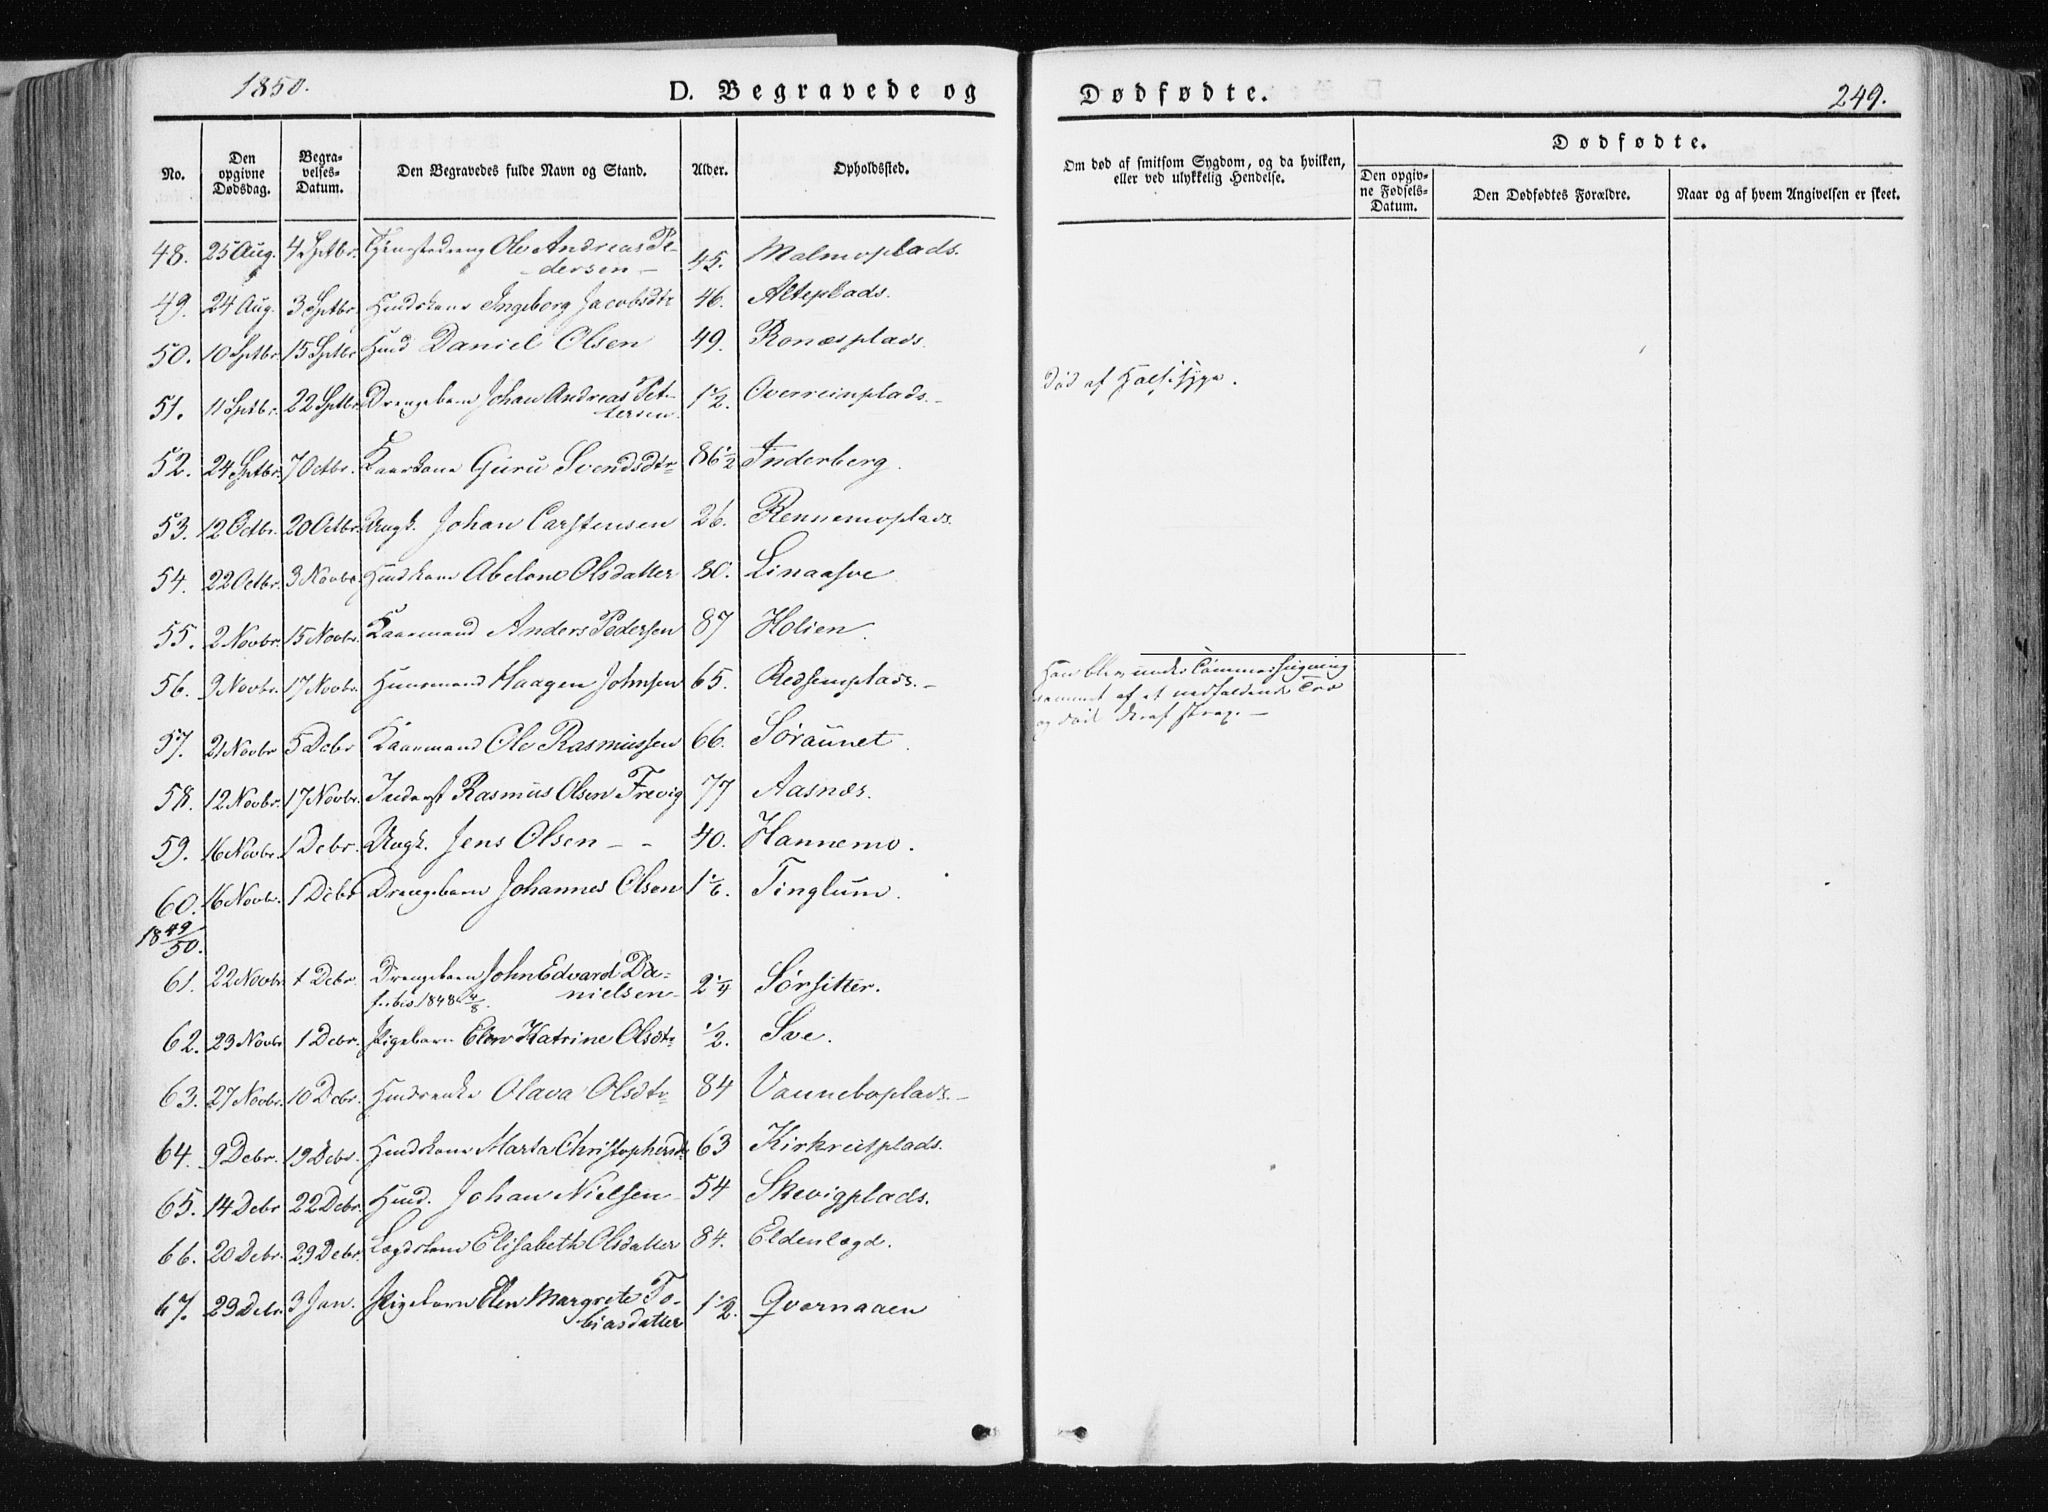 1850.
D. Begravede og
Dødfødte.
249.
No.
Den opgivne Dødsdag.
Begra-velses-Datum.
Den Begravedes fulde Navn og Stand.
Alder.
Opholdssted.
Om død af smitsom Sygdom, og da hvilken, eller ved ulykkelig Hendelse.
Dødfødte.
Den opgiv-ne Fødsels-Datum.
Den Dødfødtes Forældre.
Naar og af hvem Angivelsen er skeet.
48. 25 Aug. 4 Sptbr. Tjenestedreng Ole Andreas Pe-
dersen — 45. Malmoplads.
49. 24 Aug. 3 Sptbr Huuskone Ingeborg Jacobsdtr 46. Alteplads.
50. 10 Sptbr. 15 Sptbr Huusd Daniel Olsen 49. Ronæsplads.
51. 11 Sptbr. 22 Sptbr Drengebarn Johan Andreas Pet-
tersen. 1 1/2. Overreinplads.— død af Halssyge.
52. 24 Sptbr. 7 Octbr. Kaarkone Guru Svendsdtr 86 1/2 Inderberg.
53. 12 Octbr. 20 Octbr. Ungk. Johan Carstensen 26. Rennemoplads.
54. 22 Octbr. 3 Novbr. Abelone Olsdatter 80. Linaasve
55. 2 Novbr. 15 Novbr. Kaarmand Anders Pedersen 87 Holien.
56. 9 Novbr. 17 Novbr. Huusmand Haagen Johnsen 65. Redsemplads.— Han blev under Tømmerhugning
rammet af et nedfaldende Træ
og døde deraf strax.—
57. 21 Novbr 5 Debr Kaarmand Ole Rasmussen 66. Søraunet.
58. 12 Novbr. 17 Novbr. Inderst Rasmus Olsen Frevig 77 Aasnæs.
59. 16 Novbr. 1 Debr. Ungk. Jens Olsen — - 40. Hannemo.
60. 16 Novbr. 1 Debr Drengebarn Johannes Olsen 1 1/6. Tinglum.
18 49/50.
61. 22 Novbr 1 Debr. Drengebarn John Edvard Da-
1848 4/8. nielsen 2 1/4 Sørsitter.
62. 23 Novbr 1 Debr. Pigebarn Elen Katrine Olsdtr 1/2. Sve.
63. 27 Novbr. 10 Debr. Olava Olsdtr 84 Vanneboplads.—
64. 9 Debr. 19 Debr. Marta Christophersdtr 63 Kirkreitplads.
65. 14 Debr 22 Debr. Huusd. Johan Nielsen 54 Skevigplads.
66. 20 Debr. 29 Debr. Lægdskone Elisabeth Olsdatter 84. Eldenlægd.
67. 29 Debr. 3 Jan. Pigebarn Elen Margrete To-
biasdatter 1 1/2. Qvernaaen